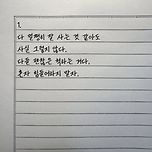 1.
다 멀쩡히 잘 사는 것 같아도
사실 그렇지 않다.
다들 괜찮은 척하는 거다.
혼자 힘들어하지 말자.